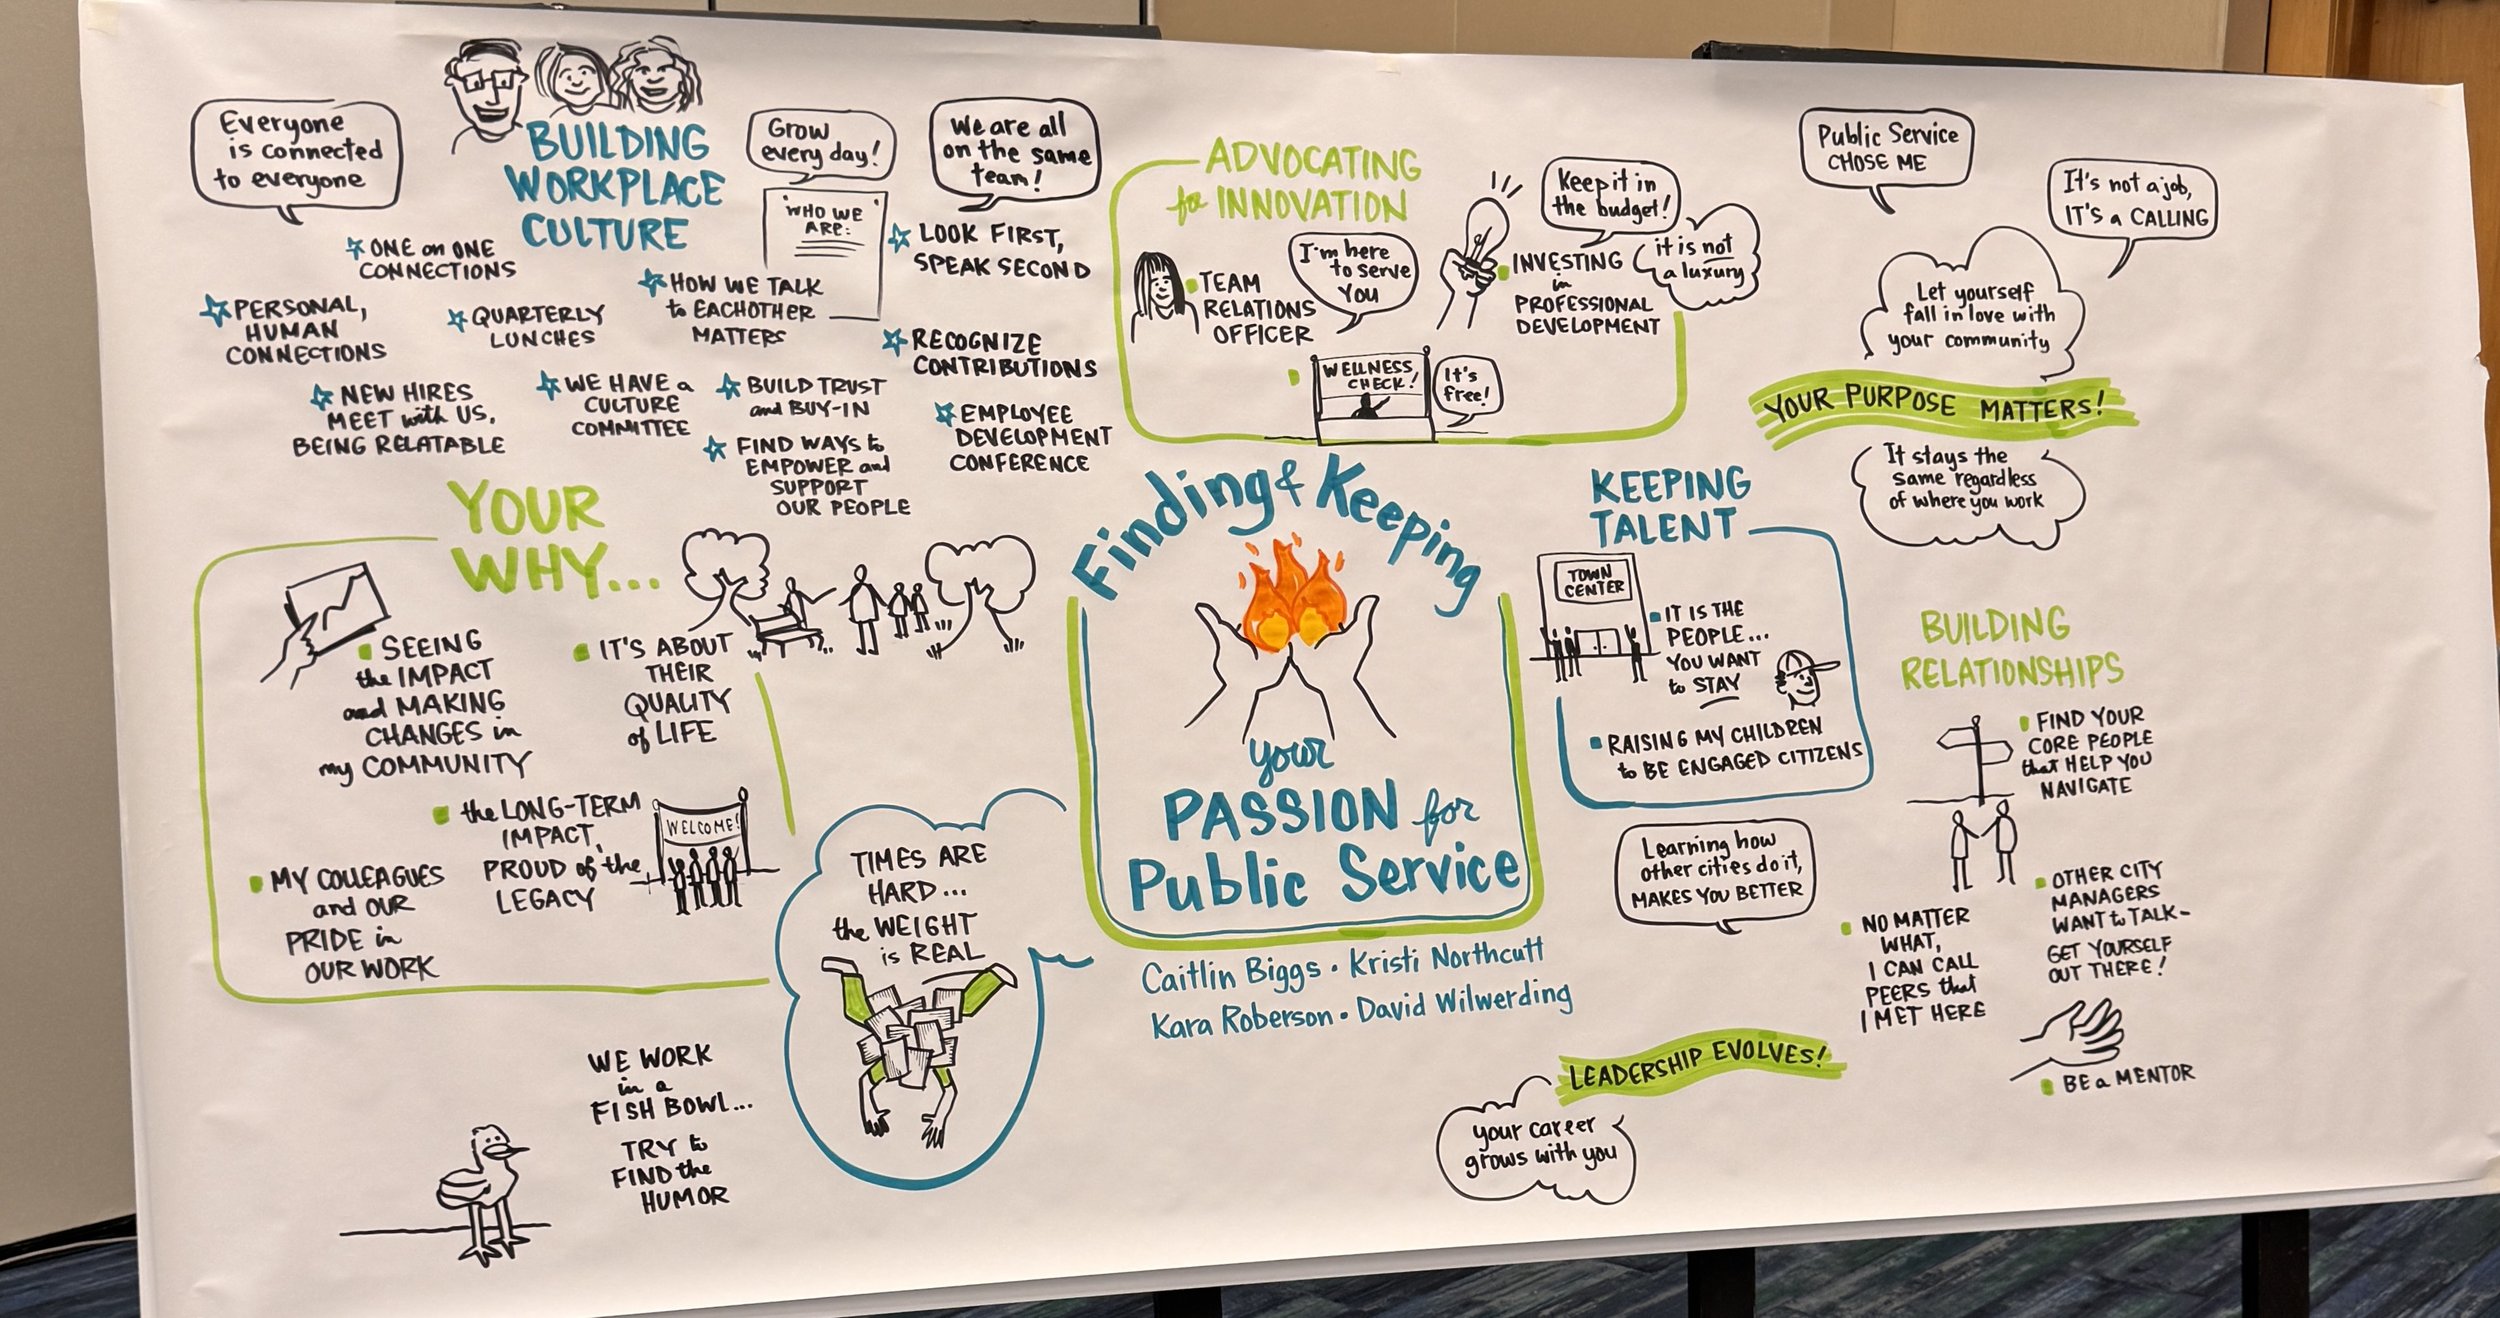 Everyone
is connected
to everyone
BUILDING
WORKPLACE
CULTURE
Grow
every day!
"WHO WE
ARE:"
We are all
on the same
team!
ONE on ONE
CONNECTIONS
PERSONAL,
HUMAN
CONNECTIONS
QUARTERLY
LUNCHES
HOW WE TALK
to EACHOTHER
MATTERS
LOOK FIRST,
SPEAK SECOND
RECOGNIZE
CONTRIBUTIONS
NEW HIRES
MEET with US,
BEING RELATABLE
WE HAVE a
CULTURE
COMMITTEE
BUILD TRUST
and BUY-IN
FIND WAYS to
EMPOWER and
SUPPORT
OUR PEOPLE
EMPLOYEE
DEVELOPMENT
CONFERENCE
ADVOCATING
for INNOVATION
TEAM
RELATIONS
OFFICER
I'm here
to serve
You
Keep it in
the budget!
INVESTING
in
PROFESSIONAL
DEVELOPMENT
it is not
a luxury
WELLNESS
CHECK!
It's
free!
Public Service
CHOSE ME
It's not a job,
IT'S a CALLING
Let yourself
fall in love with
your community
YOUR PURPOSE MATTERS!
It stays the
same regardless
of where you work
YOUR
WHY...
SEEING
the IMPACT
and MAKING
CHANGES in
my COMMUNITY
IT'S ABOUT
THEIR
QUALITY
of LIFE
the LONG-TERM
IMPACT,
PROUD of the
LEGACY
WELCOME!
MY COLLEAGUES
and OUR
PRIDE in
OUR WORK
TIMES ARE
HARD...
the WEIGHT
is REAL
WE WORK
in a
FISH BOWL...
TRY to
FIND the
HUMOR
Finding & Keeping
your
PASSION for
Public Service
Caitlin Biggs • Kristi Northcutt
Kara Roberson • David Wilwerding
KEEPING
TALENT
TOWN
CENTER
IT IS THE
PEOPLE...
YOU WANT
to STAY
RAISING MY CHILDREN
to BE ENGAGED CITIZENS
Learning how
other cities do it,
MAKES YOU BETTER
BUILDING
RELATIONSHIPS
FIND YOUR
CORE PEOPLE
that HELP YOU
NAVIGATE
OTHER CITY
MANAGERS
WANT to TALK-
GET YOURSELF
OUT THERE!
NO MATTER
WHAT,
I CAN CALL
PEERS that
I MET HERE
BE a MENTOR
LEADERSHIP EVOLVES!
your career
grows with you